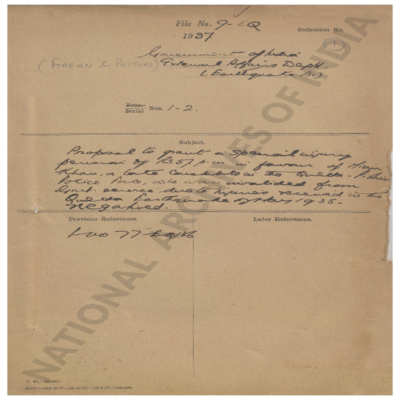 File No. 9-EQ
Collection No.
1937
Government of India
(FOREIGN & POLITICAL) External Affairs Dept.
(Earthquake Br.)
Serial Nos. 1-2.
Subject.
Proposal to grant a special injury
pension of Rs 5/- p.m. in favour of
Khan, a late constable in the Quetta
Police, who was invalided from
Govt. service due to injuries received in the
Quetta Earthquake of May 1935.
Previous References.
Later References.
NATIONAL ARCHIVES OF INDIA